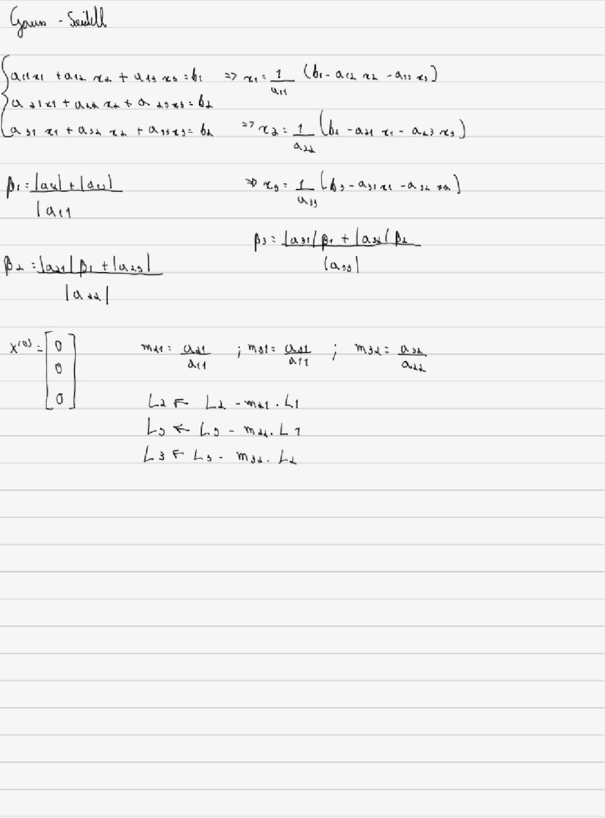 Gauss - Seidell
a11x1 + a12 x2 + a13 x3 = b1 => x1 = 1/a11 (b1 - a12 x2 - a13 x3)
a21x1 + a22 x2 + a23x3 = b2
a31 x1 + a32 x2 + a33x3 = b2 => x2 = 1/a22 (b2 - a21 x1 - a23 x3)
=> x3 = 1/a33 (b3 - a31 x1 - a32 x2)
β1 = |a12| + |a13| / |a11
β3 = |a31| β1 + |a32| β2 / |a33|
β2 = |a21| β1 + |a23| / |a22|
x(0) = [0 0 0] m21 = a21/a11 ; m31 = a31/a11 ; m32 = a32/a22
L2 ← L2 - m21 . L1
L3 ← L3 - m31 . L1
L3 ← L3 - m32 . L2